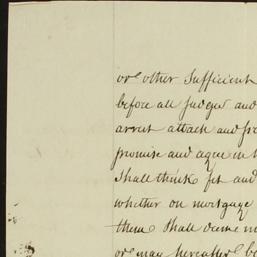 or other Sufficient
before all Judges and
arrest attach and
promise and agree in
Shall think fit and
whether on mortgage
them Shall deem
or may hereafter be